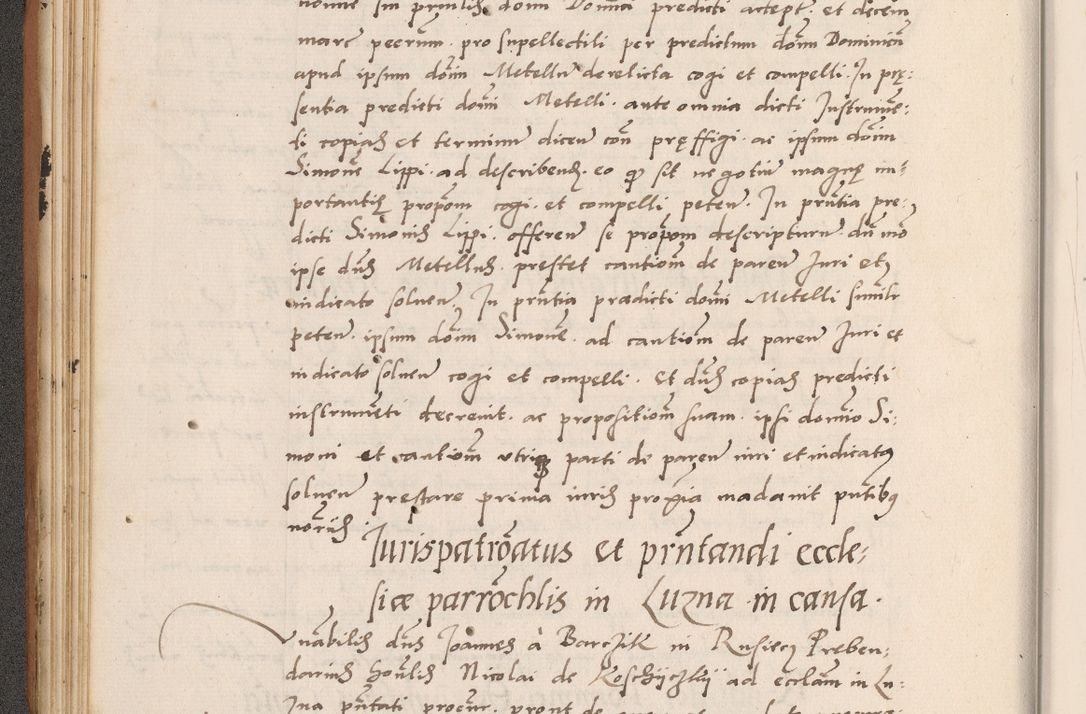 nomine sm prmliz domi Domna predicti accept. et decem
marc peccum. pro supellectili per predictum dom̄ Dominicū
apud ipsum dom̄ Metellū derelicta cogi et compelli. In prę-
sentia predicti domī Metelli. ante omnia dicti Instrumē:
ti copiaȝ et terminū dicen con pręffigi. ac ipsum dom̄
Simonē Lippi. ad describenȝ. eo q sit negotiū magnę im-
portantię propom cogi. et compelli peteñ. In prn̄tia pre-
dicti Simonis Lippi. offereñ se propom descripturū. dūmō
ipse dn̄s Metellus. prestet cautioem de pareñ Iuri et
iudicato solueñ. In prn̄tia prædicti domī Metelli similr
peteñ. ipsum dom̄ Simonē. ad cautioem de pareñ Iuri et
iudicato solueñ cogi et compelli. Et dn̄s copiaȝ predicti
instrumēti decreuit. ac propositioem suam. ipsi domīo Si:
moni et cautioem utriq parti de pareñ iuri et iudicatū
solueñ prestare prima iuris proxīa mādauit pn̄tibus
notriis
Iurispatrōatus et prn̄tandi eccle:
siæ parrōchlis in Luzna in causa.
Vnābilis dn̄s Joannes à Barczik in Rusiecz Preben:
darius hon̄lis Nicolai de Koschijczkij ad eccl̄am in Lu:
zna pn̄tati procur. pront de